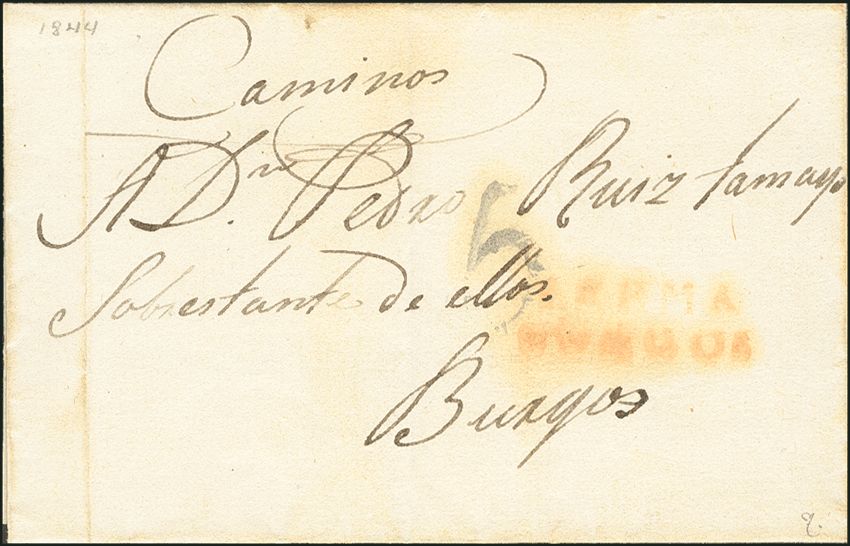 1844
Caminos
A Dn. Pedro Ruiz tamayo
Sobrestante de ellos.
5
Burgos